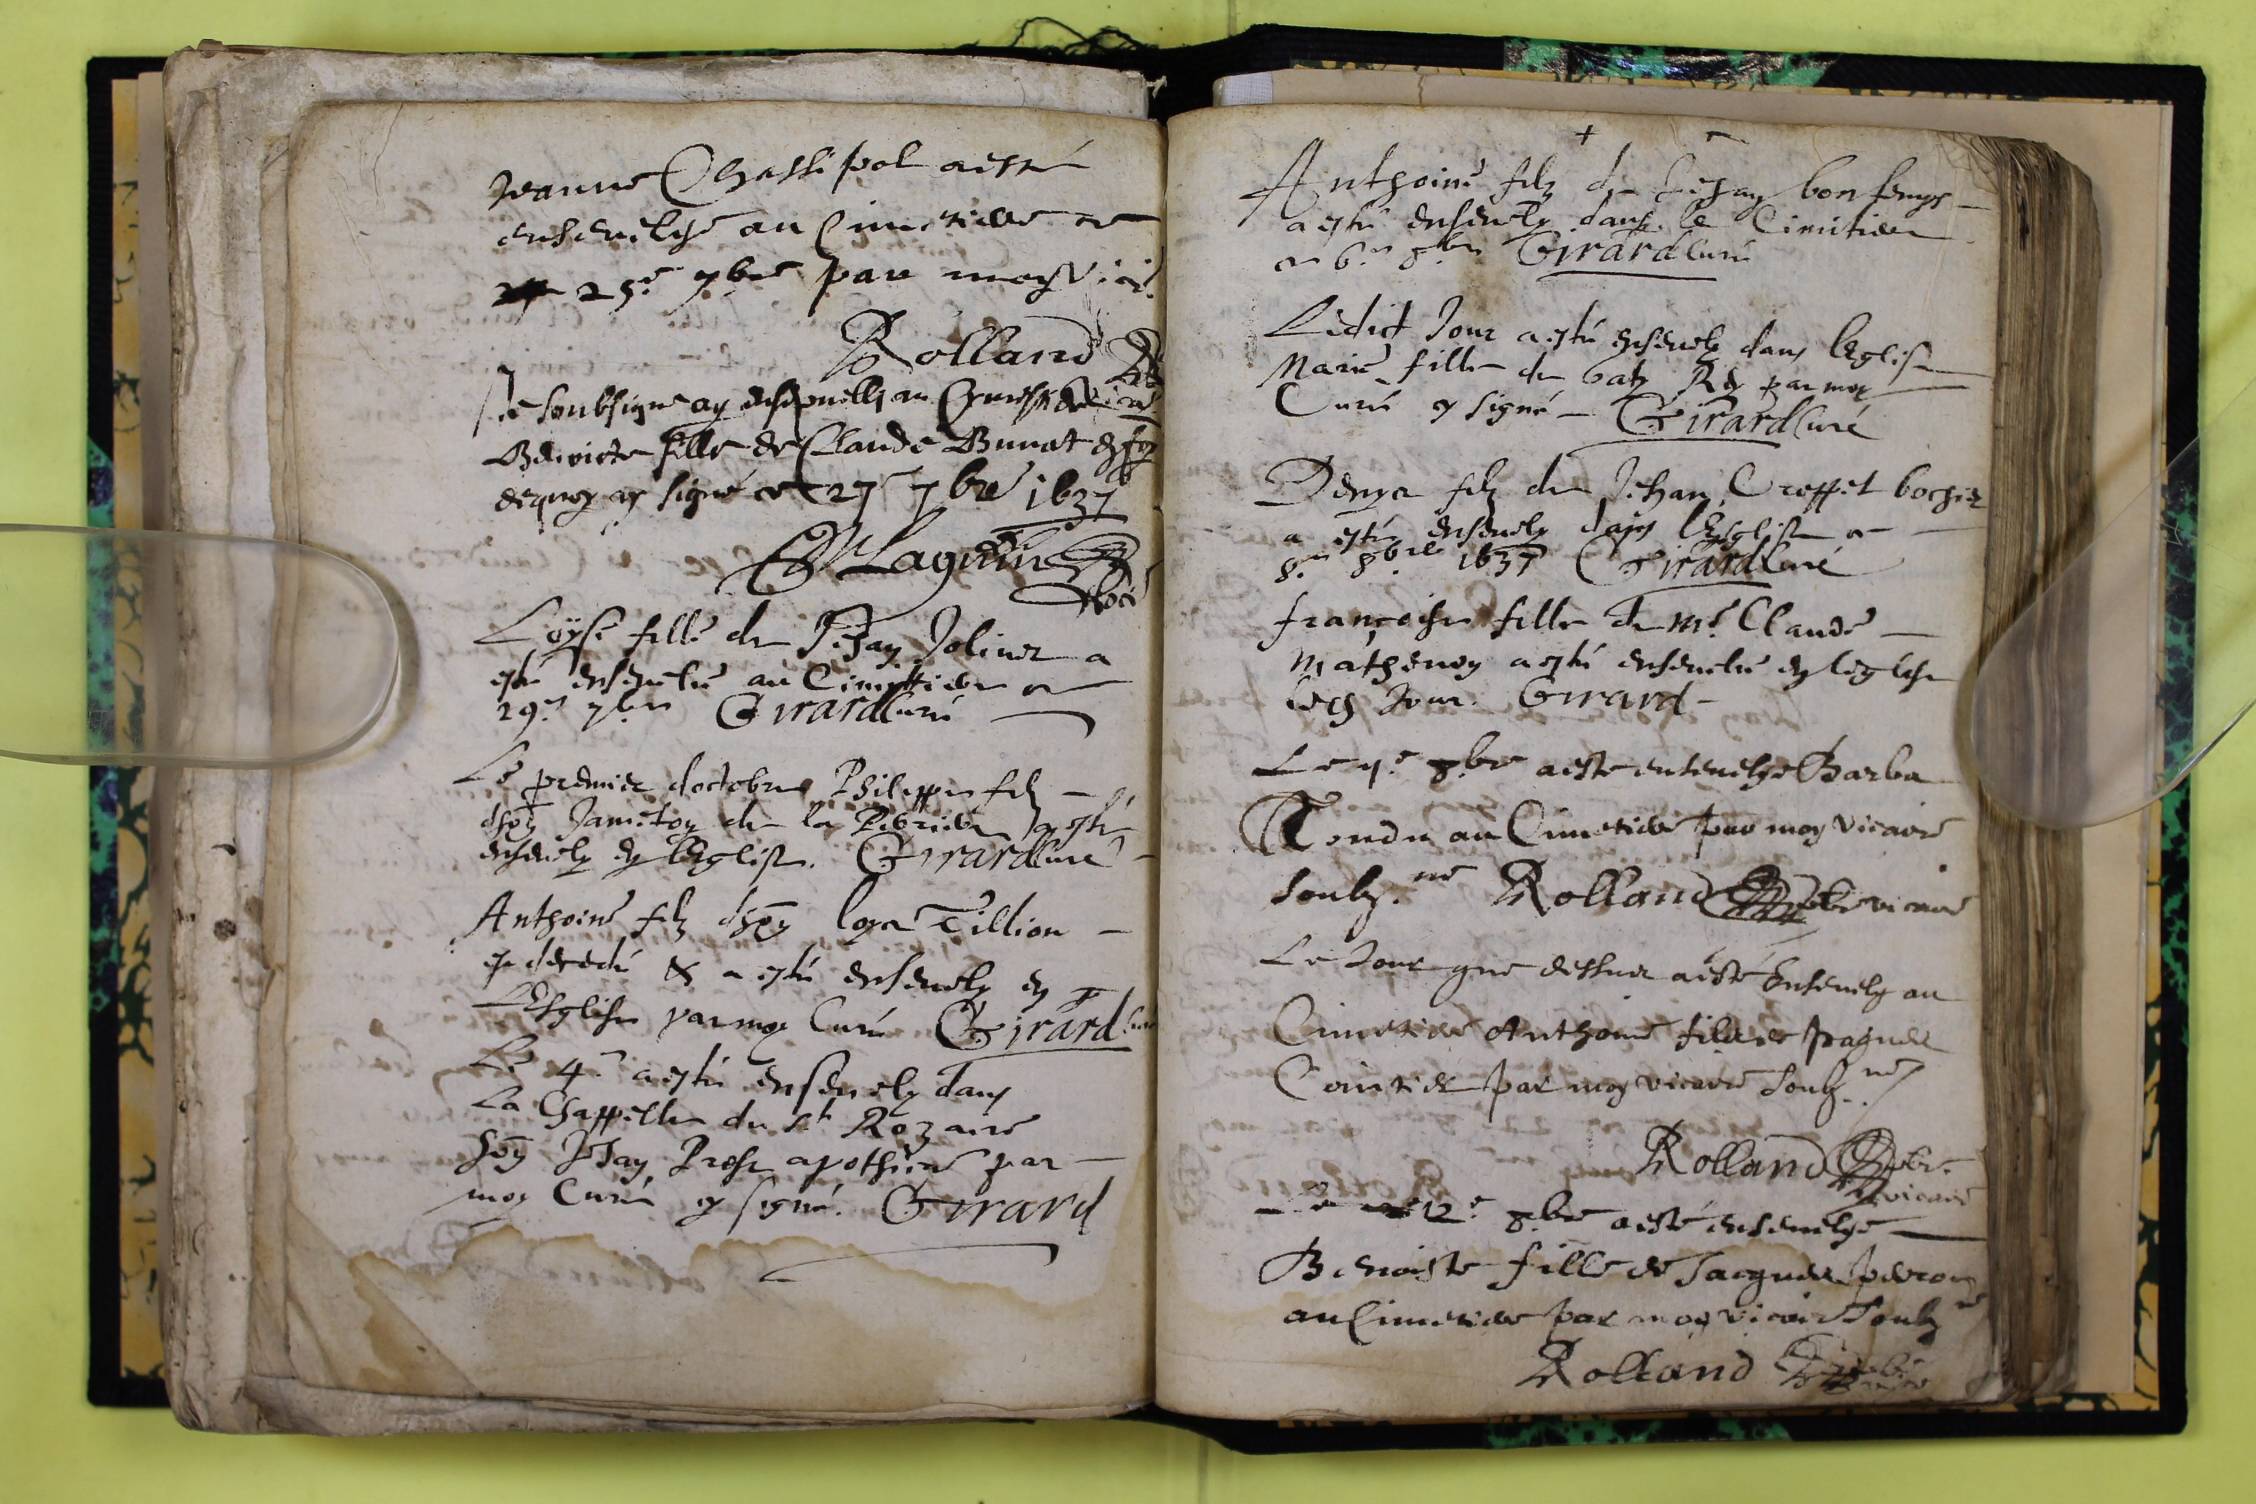 Jeanne Chassipol a esté
ensevelye au Cimetiere ce
25e 7bre par moy Vic.
Rolland
Je soubsigné ay ensepuelly au Cimetiere
Benoiste fille de Claude Bunat en foy
dequoy ay signé ce 27 7bre 1637
Lagoin
Loÿse fille de Jehan Joliner a
esté ensevelie au Cimittiere ce
29e 7bre Girard Curé
Le premier doctobre Philippe filz
Jameton de la a esté
ensevely en lEglise. Girard Curé
Anthoine filz Loys Tillion
est decedé & a esté ensevely en
LEsglise par moy Curé Girard Curé
Le 4e a esté ensevely dans
La Chappelle du St Rozaire
Jehan Prost apothicre par
moy Curé et signé. Girard
Anthoine filz de Jehan bontemps
a esté ensevely dans le Cimitiere
ce 6e 8bre Girard Curé
Ledict Jour a esté ensevely dans lEglise
Marie fille de par moy
Curé et signé Girard Curé
Denys filz de Jehan Croppet
a esté ensevely dans lEsglise ce
8e 8bre 1637 Girard Curé
françoise fille de Me Claude
Mathevoy a esté ensevelie en leglise
Jour. Girard
Le 9e 8bre a esté ensevelye Barba
Tondu au Cimetiere par moy vicaire
soulz.né Rolland pbre vicaire
Le Jour que dessus a esté Ensevely au
Cimetiere Anthoine filz de
Cointier par moy vicaire soulz.né
Rolland pbre.
vicaire
Le 12e 8bre a esté ensevelye
Benoiste fille de Jacques peron
au Cimetiere par moy vicaire soulzné
Rolland pbre